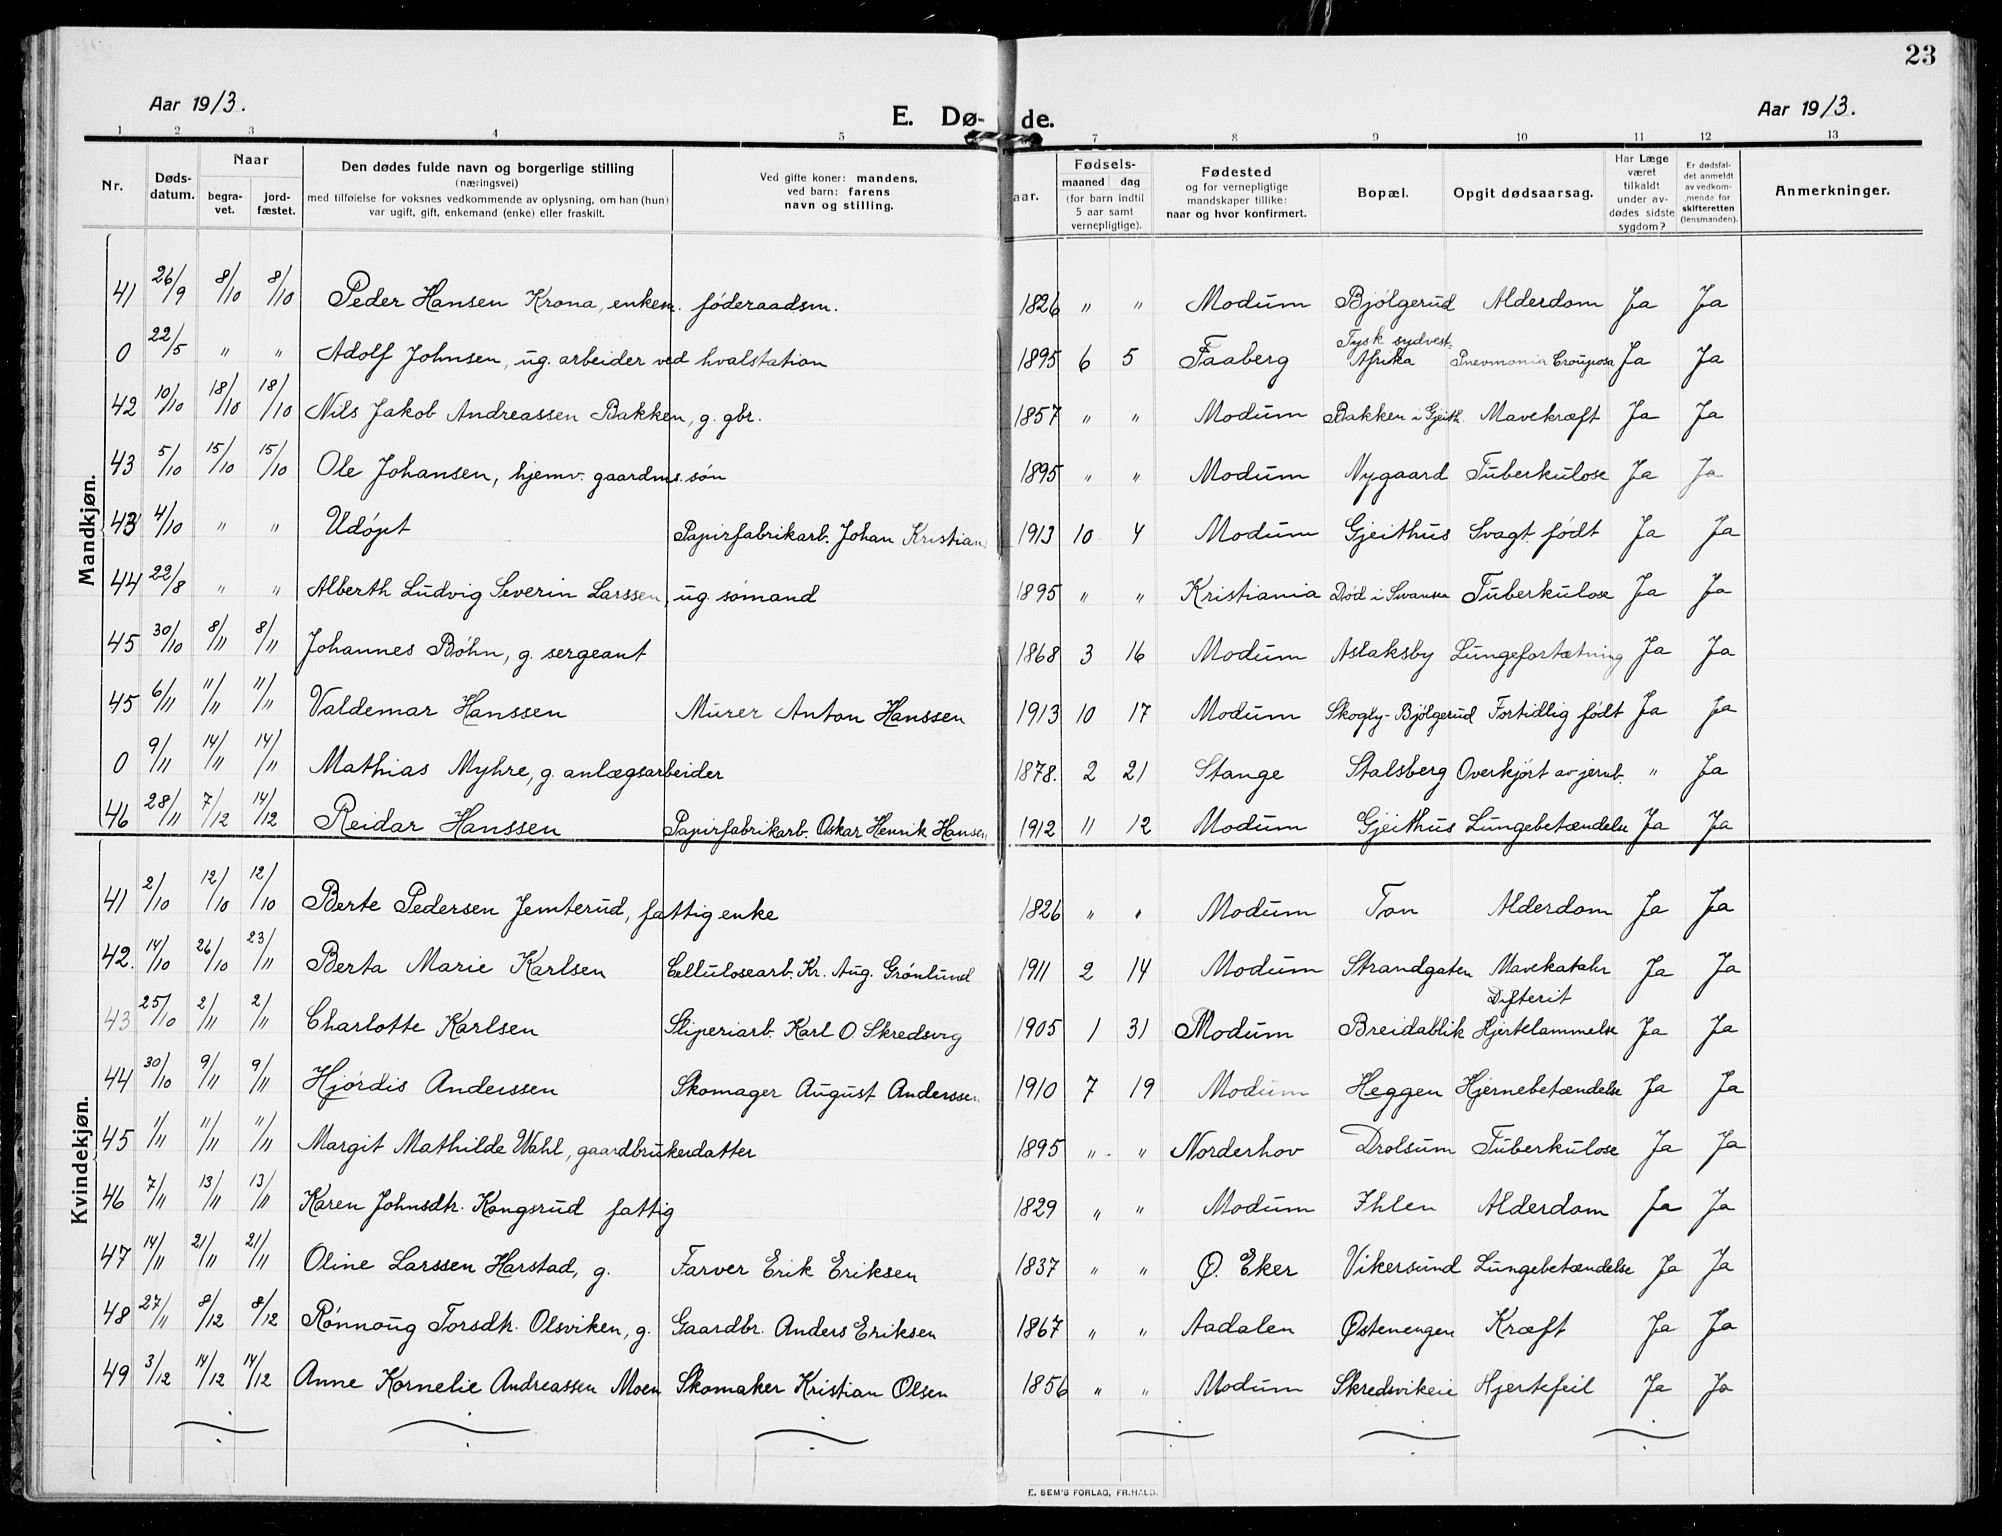 23
Aar 1913. E. Dø- de. Aar 1913.
1 2 3 4 5 7 8 9 10 11 12 13
Nr. Døds-datum. Naar begra-vet. jord-fæstet. Den dødes fulde navn og borgerlige stilling (næringsvei) med tilføielse for voksnes vedkommende av oplysning, om han (hun) var ugift, gift, enkemand (enke) eller fraskilt. Ved gifte koner: mandens, ved barn: farens navn og stilling. aar. Fødsels- maaned dag (for barn indtil 5 aar samt vernepligtige). Fødested og for vernepligtige mandskaper tillike: naar og hvor konfirmert. Bopæl. Opgit dødsaarsag. Har Læge været tilkaldt under av-dødes sidste sygdom? Er dødsfal-det anmeldt av vedkom-mende for skifteretten (lensmanden). Anmerkninger.
Mandkjøn.
41 26/9 8/10 8/10 Peder Hansen Krona, enkem. føderaadsm. 1826 " " Modum Bjølgerud Alderdom Ja Ja
0 22/5 " " Adolf Johnsen, ug. arbeider ved hvalstation 1895 6 5 Faaberg Tysk sydvest-Afrika Pnevmonia Crouposa Ja Ja
42 10/10 18/10 18/10 Nils Jakob Andreassen Bakken, g. gbr. 1857 " " Modum Bakken i Gjeith. Mavekræft Ja Ja
43 5/10 15/10 15/10 Ole Johansen, hjemv. gaardms. søn 1895 " " Modum Nygaard Tuberkulose Ja Ja
43 4/10 " " Udøpt Papirfabrikarb. Johan Kristian 1913 10 4 Modum Gjeithus Svagt født Ja Ja
44 22/8 " " Alberth Ludvig Severin Larssen, ug. sømand 1895 " " Kristiania Død i Swansea Tuberkulose Ja Ja
45 30/10 8/11 8/11 Johannes Bøhn, g. sergeant 1868 3 16 Modum Aslaksby Lungefortætning Ja Ja
45 6/11 11/11 11/11 Valdemar Hanssen Murer Anton Hanssen 1913 10 17 Modum Skogly-Bjølgerud Fortidlig født Ja Ja
0 9/11 14/11 14/11 Mathias Myhre, g. anlægsarbeider 1878. 2 21 Stange Stalsberg Overkjørt av jernb. " Ja
46 28/11 7/12 14/12 Reidar Hanssen Papirfabrikarb. Oskar Henrik Hansen 1912 11 12 Modum Gjeithus Lungebetændelse Ja Ja
Kvindekjøn.
41 2/10 12/10 12/10 Berte Pedersen Jemterud, fattig enke 1826 " " Modum Ton Alderdom Ja Ja
42. 14/10 26/10 23/11 Berta Marie Karlsen Cellulosearb. Kr. Aug. Grønlund 1911 2 14 Modum Strandgaten Mavekatahr Ja Ja
43 25/10 2/11 2/11 Charlotte Karlsen Sliperiarb. Karl O. Skredsvig 1905 1 31 Modum Breidablik Difterit Hjertelammelse Ja Ja
44 30/10 9/11 9/11 Hjørdis Anderssen Skomager August Anderssen 1910 7 19 Modum Heggen Hjernebetændelse Ja Ja
45 1/11 11/11 11/11 Margit Mathilde Wahl, gaardbrukerdatter 1895 " " Norderhov Drolsum Tuberkulose Ja Ja
46 7/11 13/11 13/11 Karen Johnsdtr. Kongsrud fattig 1829 " " Modum Ihlen Alderdom Ja Ja
47 14/11 21/11 21/11 Oline Larssen Harstad, g. Farver Erik Eriksen 1837 " " Ø. Eker Vikersund Lungebetændelse Ja Ja
48 27/11 8/12 8/12 Rønnoug Torsdtr. Olsviken, g. Gaardbr. Anders Eriksen 1867 " " Aadalen Østenengen Kræft Ja Ja
49 3/12 14/12 14/12 Anne Kornelie Andreassen Moen Skomaker Kristian Olsen 1856 " " Modum Skredsvikeie Hjertefeil Ja Ja
E. SEM'S FORLAG, FR.HALD.